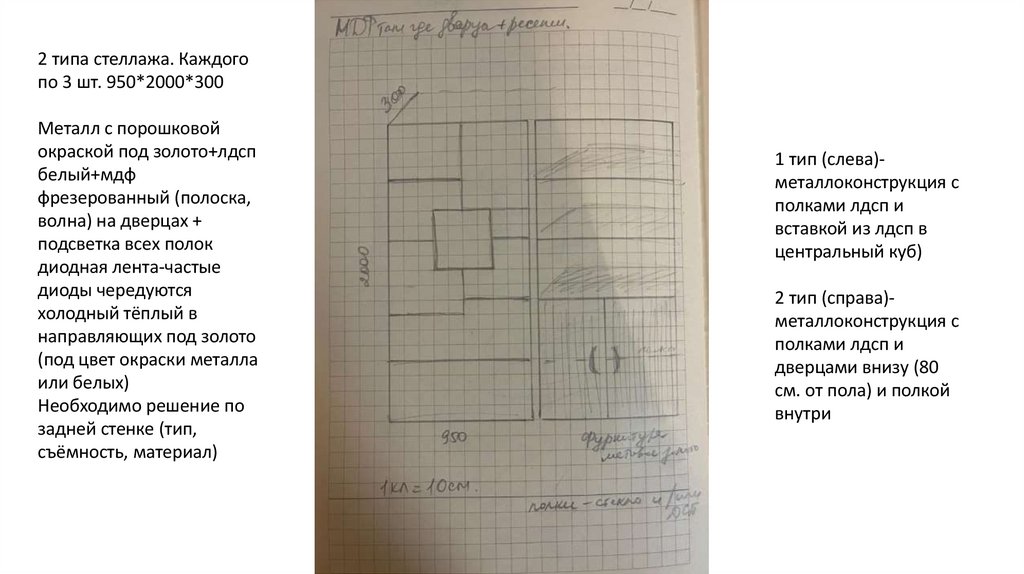 2 типа стеллажа. Каждого
по 3 шт. 950*2000*300
Металл с порошковой
окраской под золото+лдсп
белый+мдф
фрезерованный (полоска,
волна) на дверцах +
подсветка всех полок
диодная лента-частые
диоды чередуются
холодный тёплый в
направляющих под золото
(под цвет окраски металла
или белых)
Необходимо решение по
задней стенке (тип,
съёмность, материал)
МДФ там где дварца + ресепш.
300
2000
950
полка
фурнитура
матовое золото
1кл = 10см.
полки - стекло и/или
ДСП
1 тип (слева)-
металлоконструкция с
полками лдсп и
вставкой из лдсп в
центральный куб)
2 тип (справа)-
металлоконструкция с
полками лдсп и
дверцами внизу (80
см. от пола) и полкой
внутри